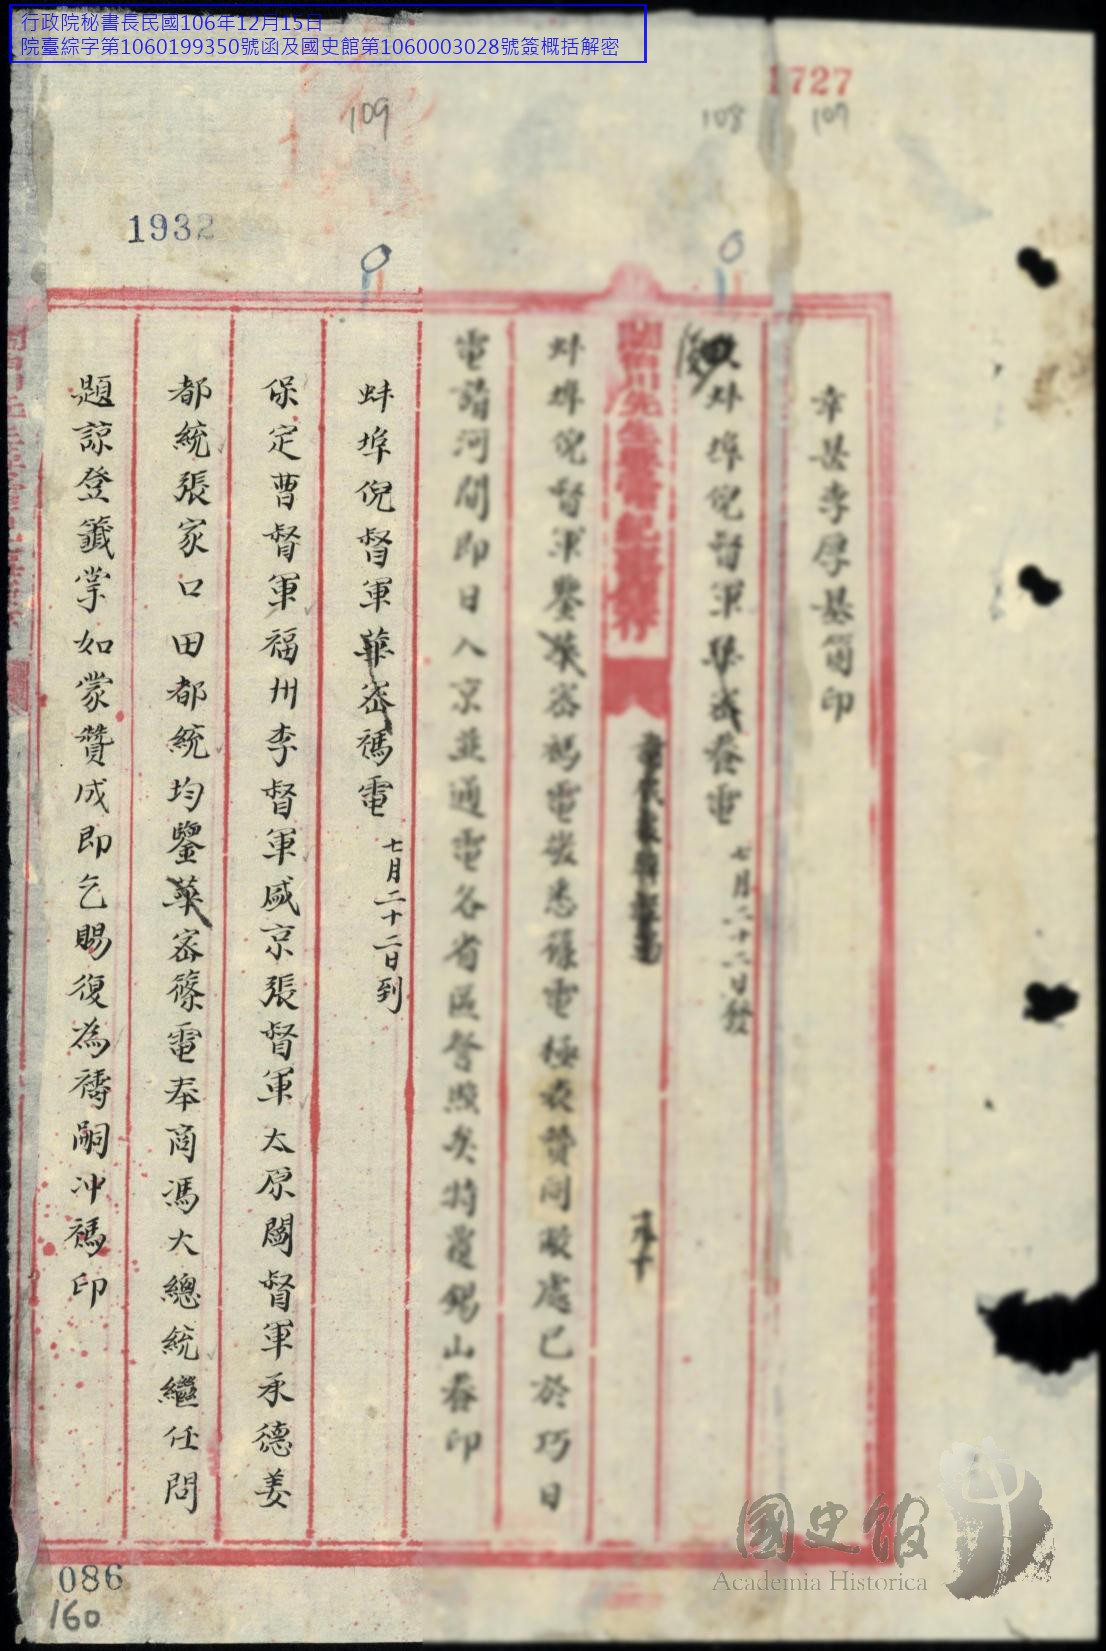 行政院秘書長民國106年12月15日
院臺綜字第1060199350號函及國史館第1060003028號簽概括解密
1727
107
108
109
1932
李厚基箇印
蚌埠倪督軍華密養電 七月二十二日發
蚌埠倪督軍鑒華密禡電敬悉張電極表贊同敝處已於巧日
電請河間即日入京並通電各省區督照矣特覆錫山養印
蚌埠倪督軍華密禡電 七月二十二日到
保定曹督軍福州李督軍咸京張督軍太原閻督軍承德姜
都統張家口田都統均鑒華密篠電奉商馮大總統繼任問
題諒登籤掌如蒙贊成即乞賜復為禱嗣冲禡印
086
160
國史館
Academia Historica